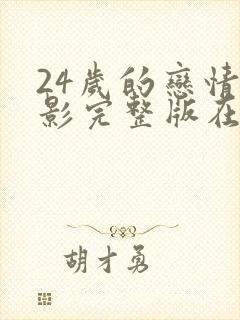 24歲的戀情
影完整版在
胡才勇